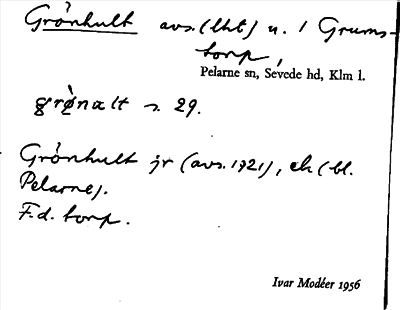 Grönhult avs. (lht) u. 1 Grums-
torp,
Pelarne sn, Sevede hd, Klm l.
grö̀nalt s. 29.
Grönhult jr (avs. 1921), ek (bl.
Pelarne).
F.d. torp.
Ivar Modéer 1956